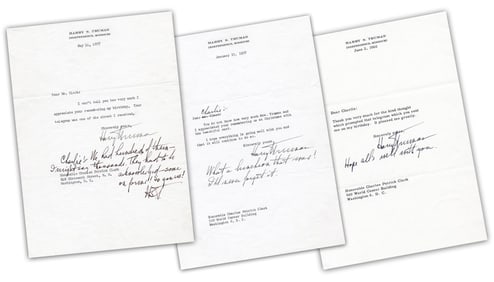 HARRY S. TRUMAN
INDEPENDENCE, MISSOURI
May 21, 1957
Dear Mr. Clark:
I can't tell you how very much I
appreciate your remembering my birthday. Your
telegram was one of the finest I received.
Sincerely yours,
Harry Truman
Charlie: We had hundreds of them
thousands. They had to be
acknowledged
Honorable Charles Patrick Clark
Washington, D. C.
HARRY S. TRUMAN
INDEPENDENCE, MISSOURI
January 10, 1958
Charlie:
Dear
You do not know how very much Mrs. Truman and
I appreciated your remembering us at Christmas with
the beautiful card.
I hope everything is going well with you and
that it will continue to do so.
Sincerely yours,
Harry Truman
What a luncheon that was!
I'll never forget it.
Honorable Charles Patrick Clark
World Center Building
Washington 6, D. C.
HARRY S. TRUMAN
INDEPENDENCE, MISSOURI
Dear Charlie:
Thank you very much for the kind thought
which prompted that telegram which you sent
me on my birthday. It pleased me greatly.
Sincerely yours,
Harry Truman
Hope all's well with you.
Honorable Charles Patrick Clark
World Center Building
Washington 6, D. C.